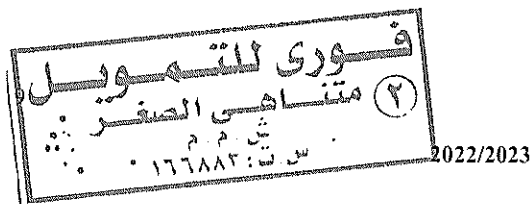 فورى للتمويل
متناهى الصغر ٢
ش . م . م
س . ت : ١٦٦٨٨٢
2022/2023